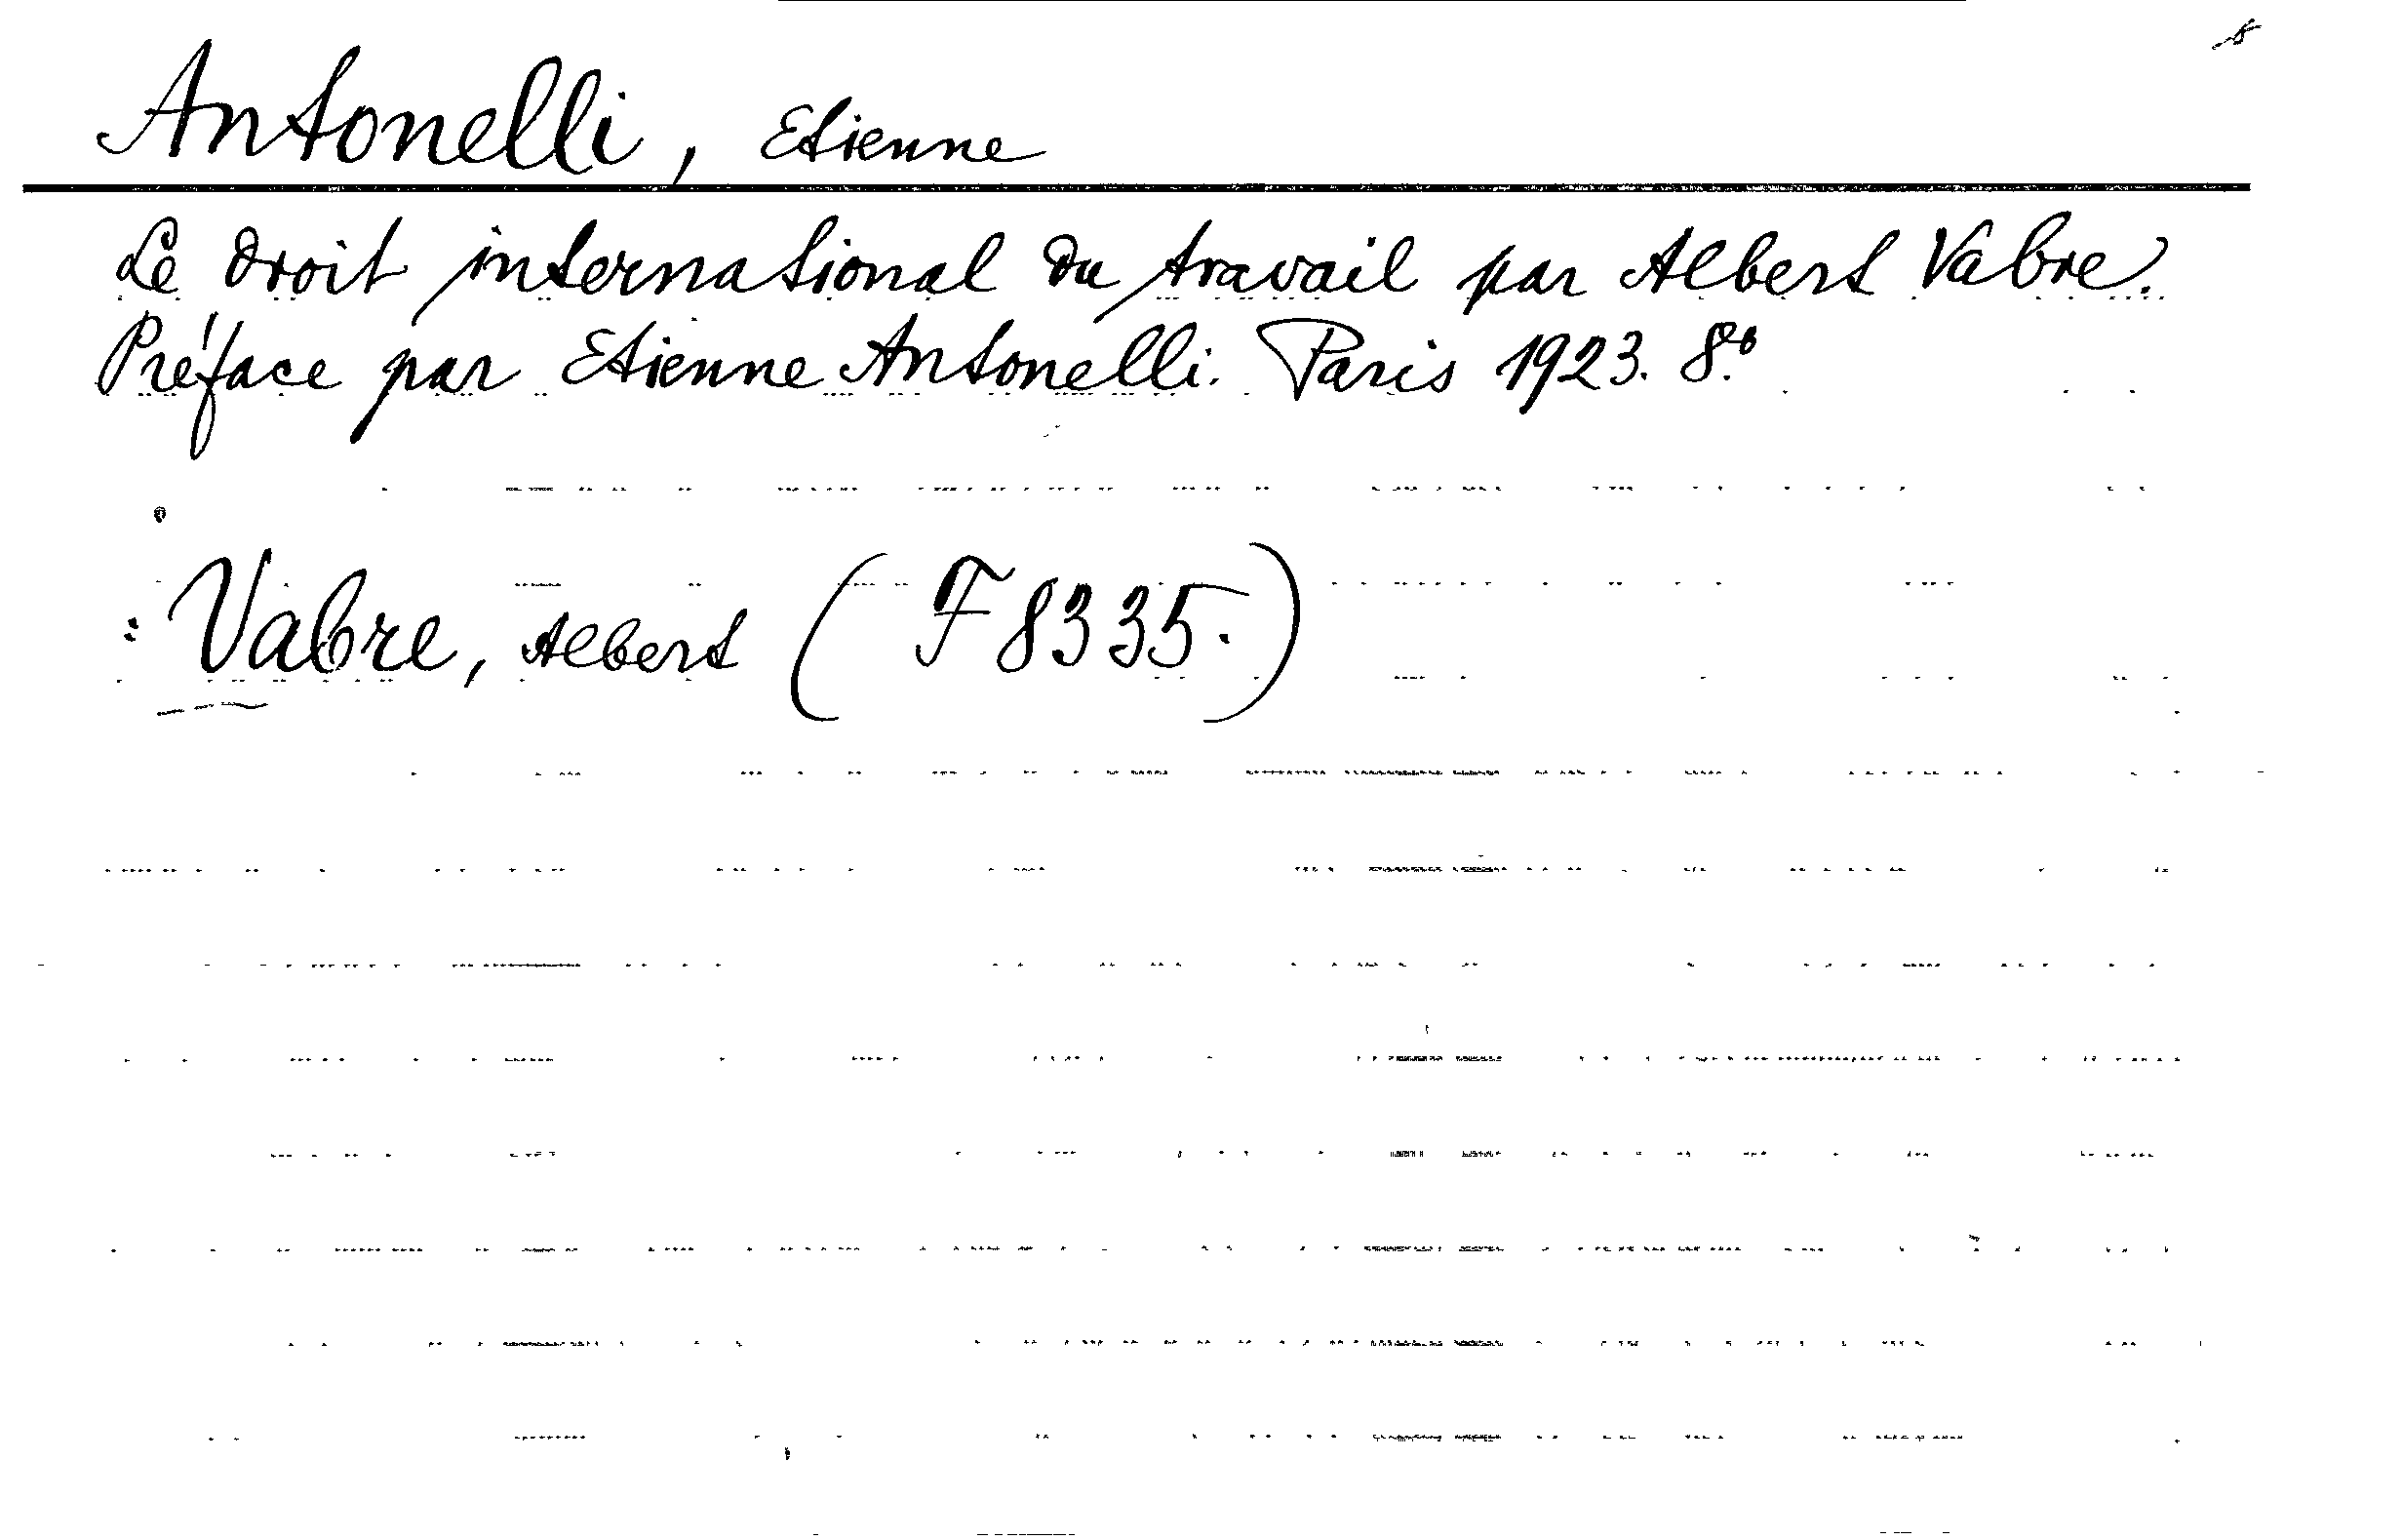 Antonelli, Etienne
Le droit international du travail par Albert Vabre.
Préface par Etienne Antonelli. Paris 1923. 8.º
: Vabre, Albert (F 8335.)